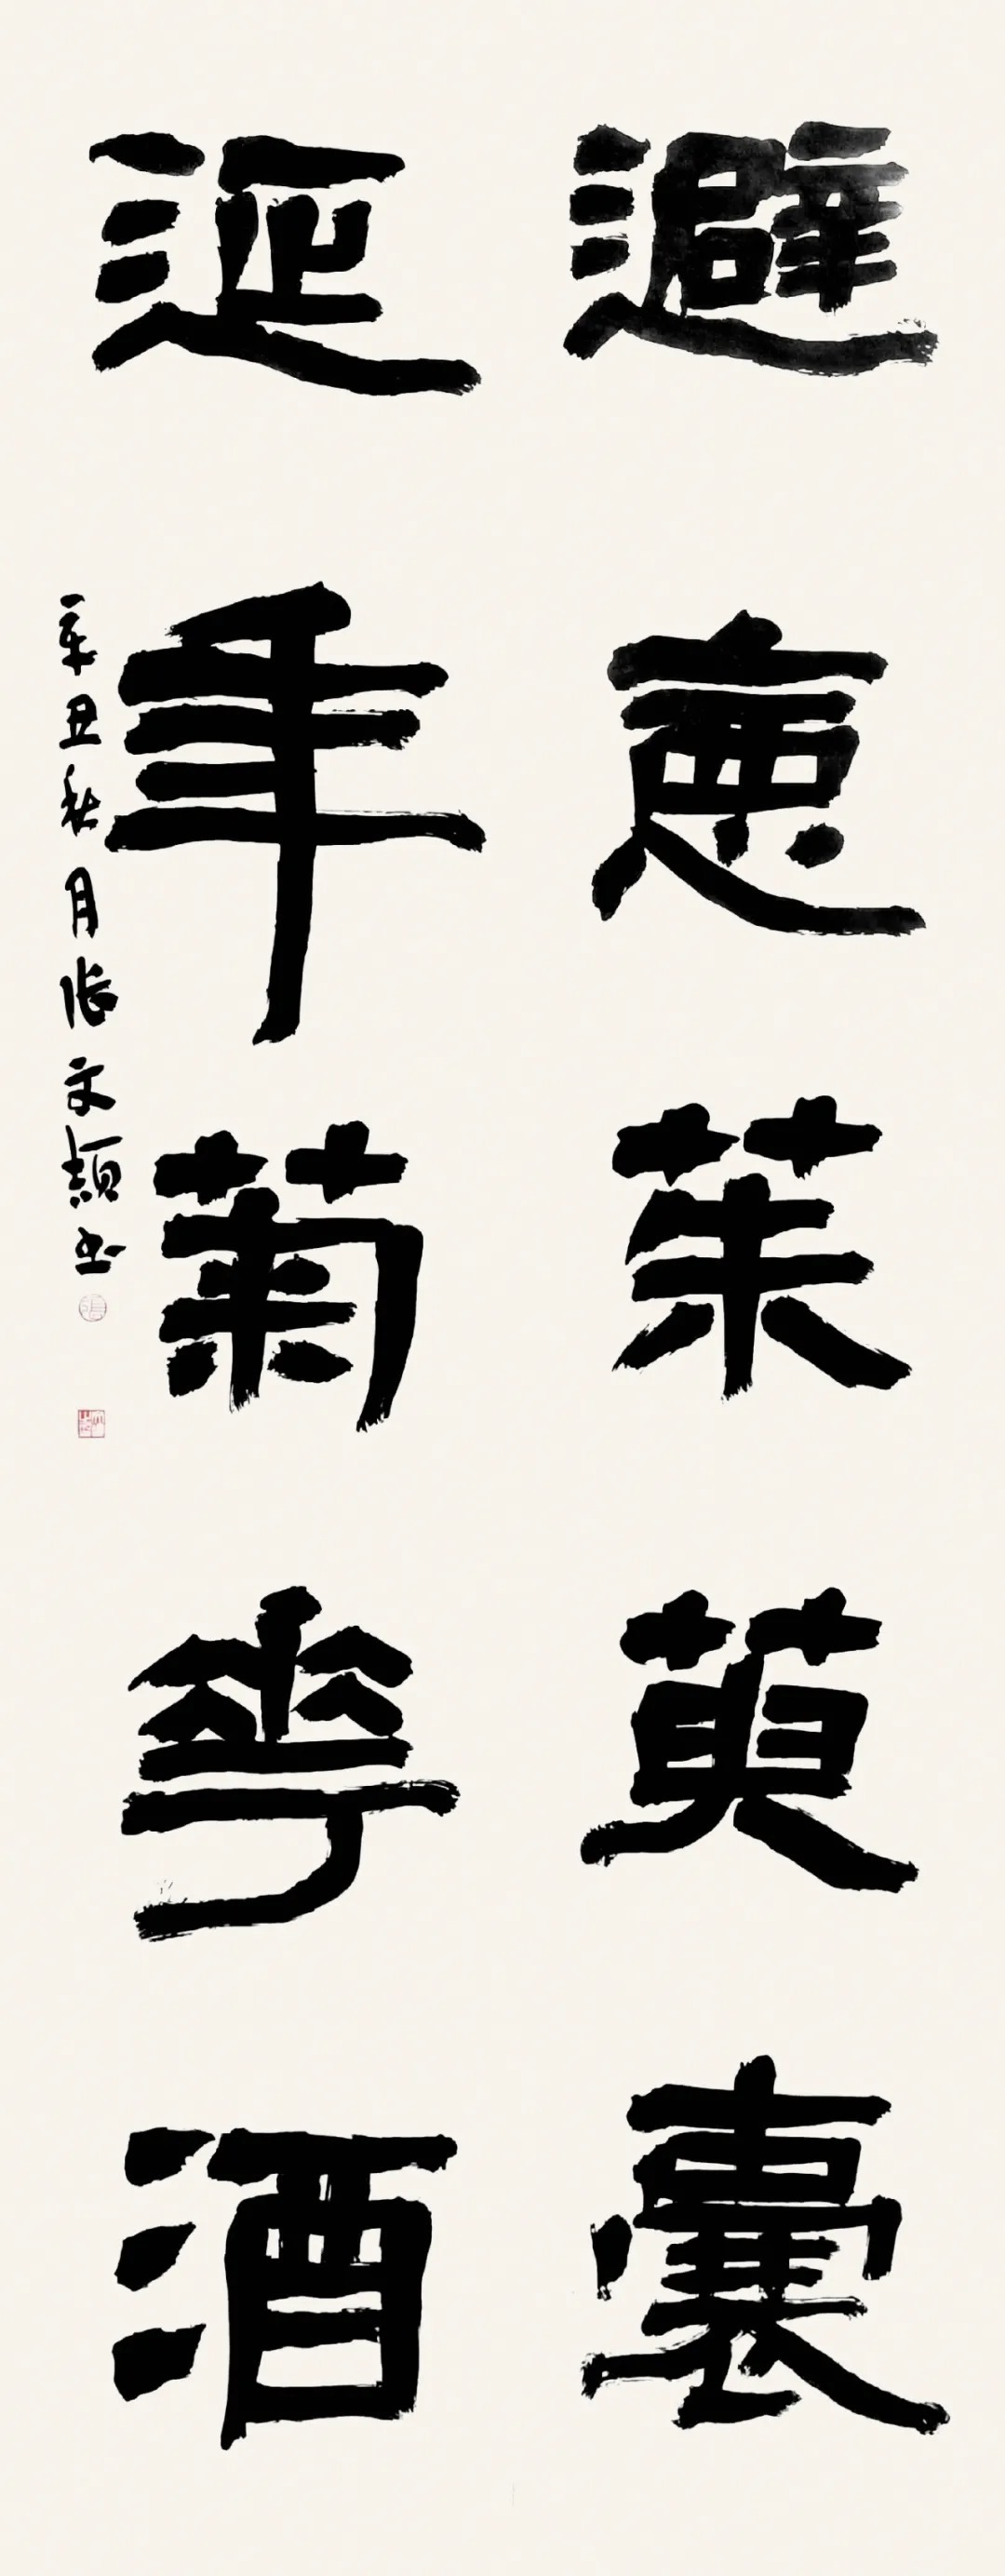 避惡茱萸囊
延年菊華酒
辛丑秋月張文頡書
張